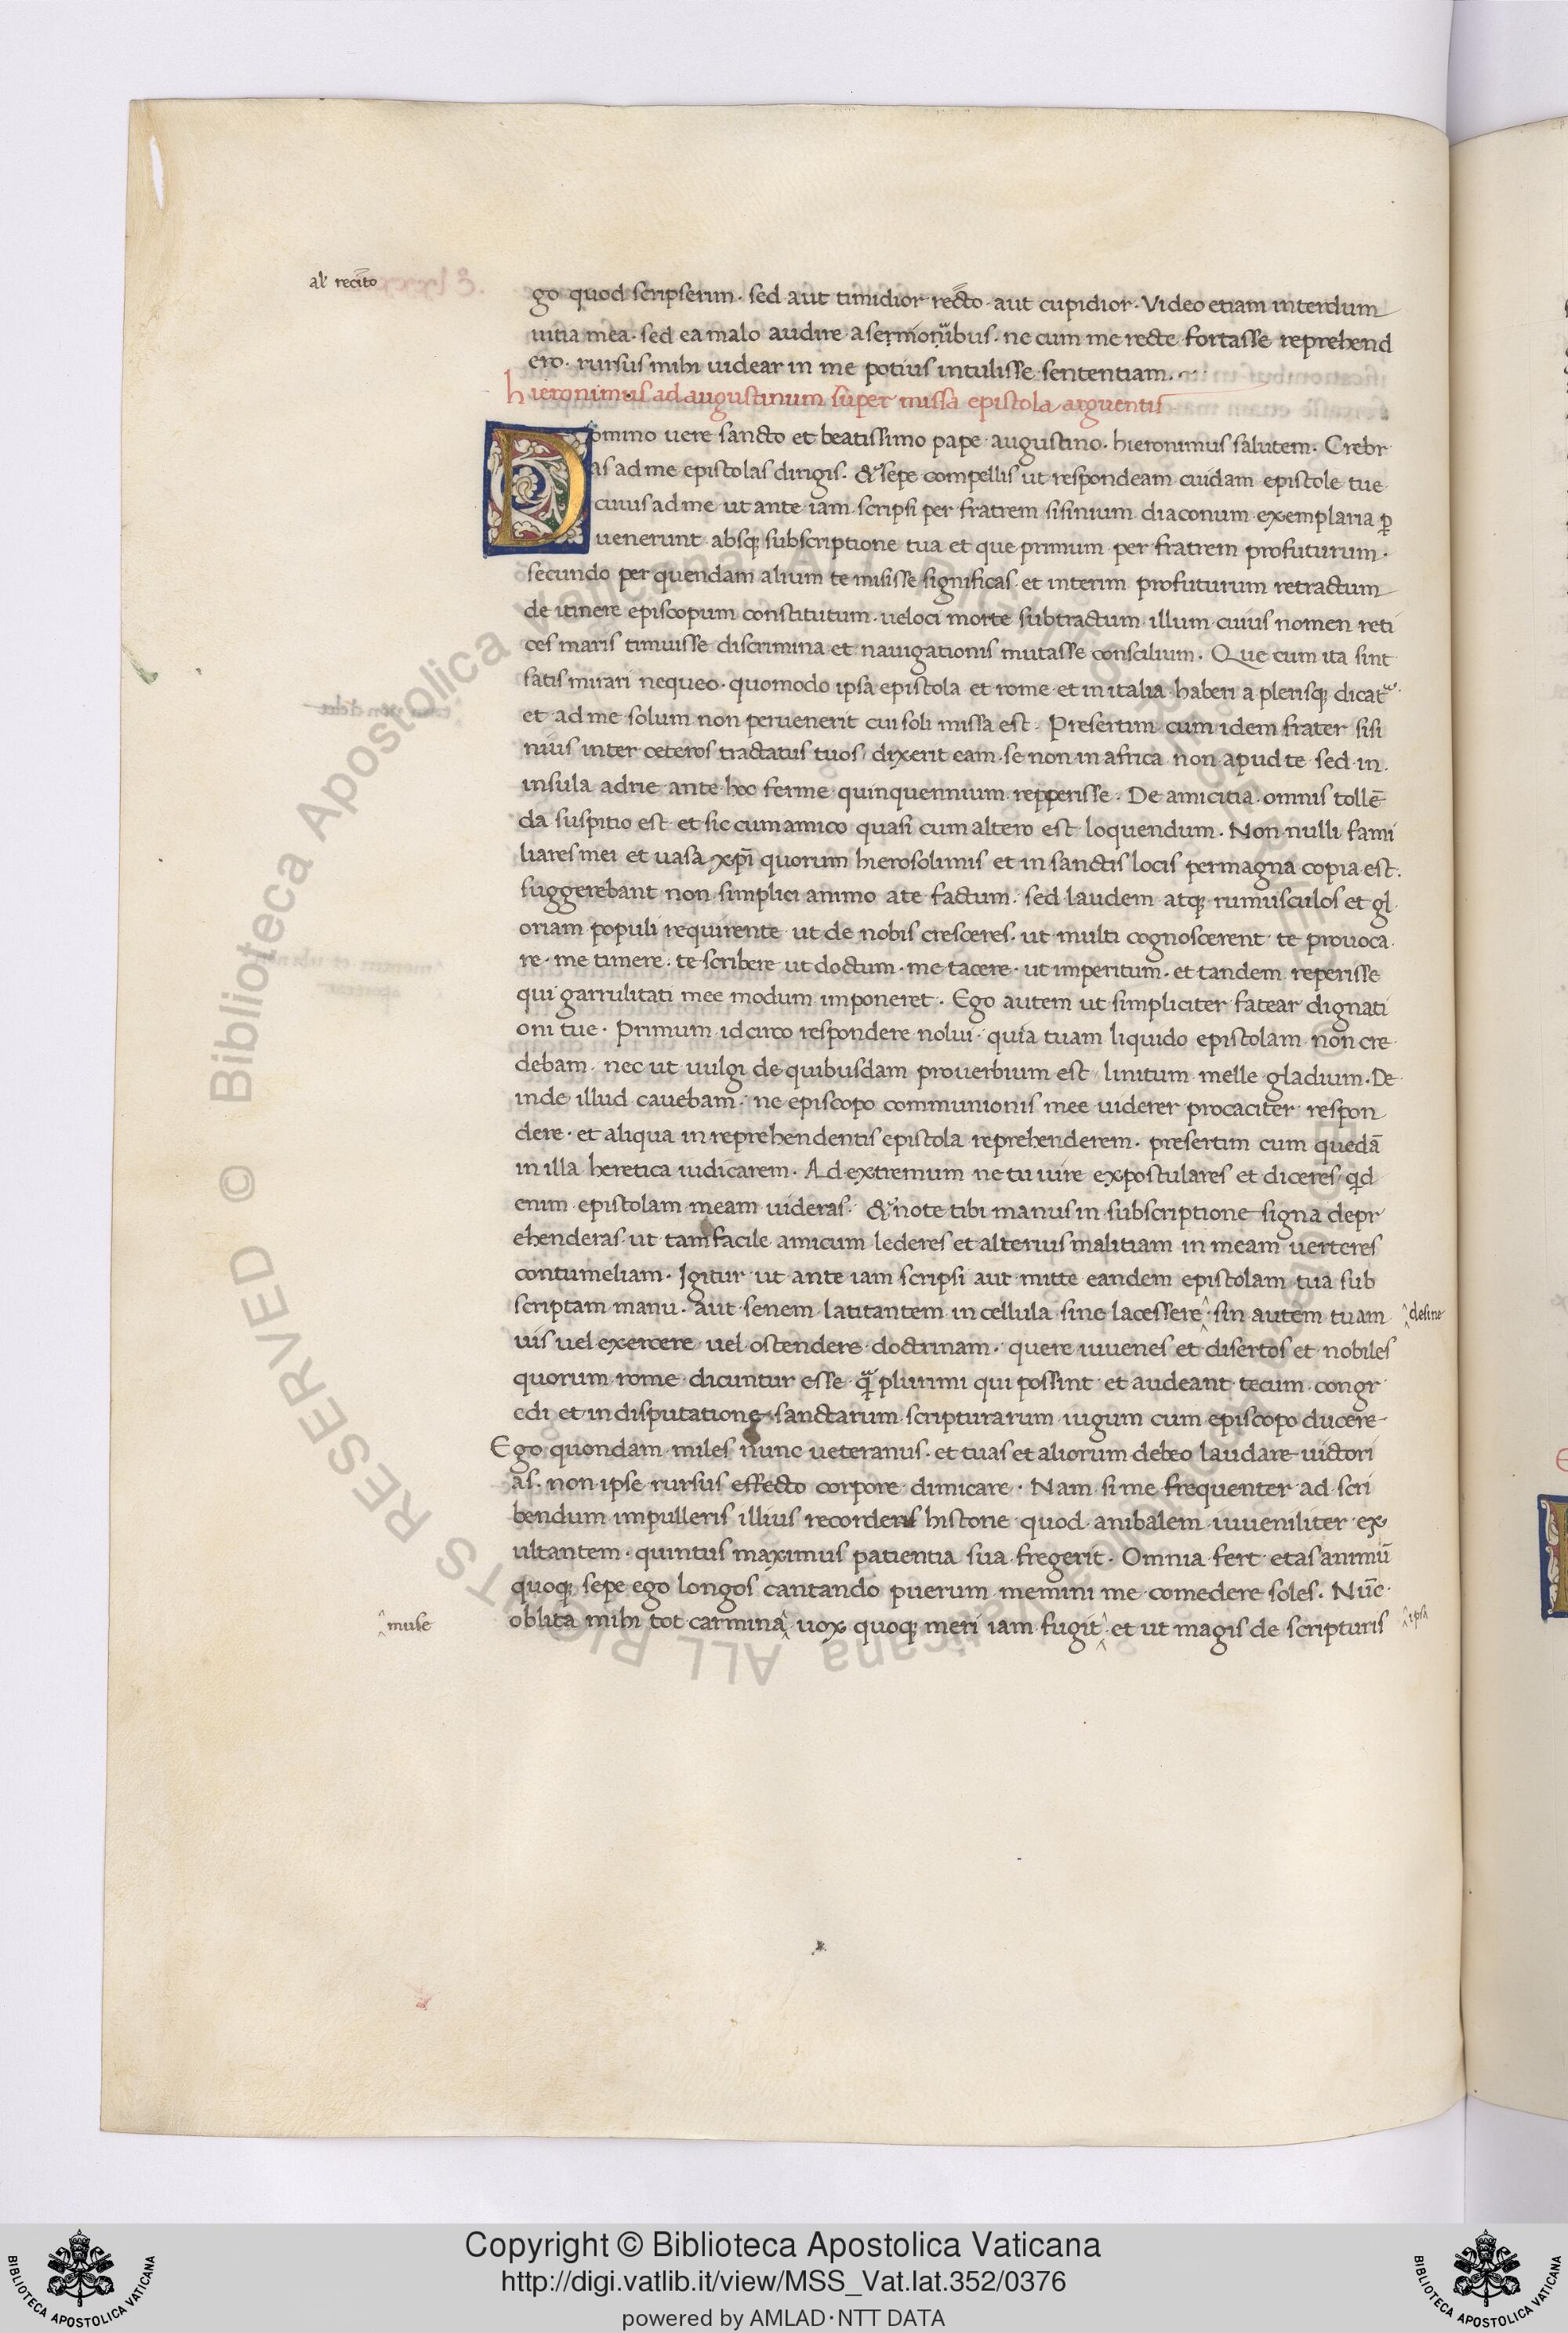 al' recito
go quod scripserim· sed aut timidior recto· aut cupidior· Video etiam interdum
uitia mea· sed ea malo audire a sermonibus· ne cum me recte fortasse reprehend
ero· rursus mihi uidear in me potius intulisse sententiam·
hieronimus ad augustinum super missa epistola arguentis
Domino uere sancto et beatissimo pape augustino· hieronimus salutem· Crebr
as ad me epistolas dirigis· & sepe compellis ut respondeam cuidam epistole tue
cuius ad me ut ante iam scripsi per fratrem sisinium diaconum exemplaria ꝑ
uenerunt absqꝫ subscriptione tua et que primum per fratrem profuturum·
secundo per quendam alium te misisse significas· et interim profuturum retractum
de itinere episcopum constitutum· ueloci morte subtractum illum cuius nomen reti
ces maris timuisse discrimina et nauigationis mutasse conscilium· Que cum ita sint
satis mirari nequeo· quomodo ipsa epistola et rome et in italia haberi a plerisqꝫ dicat᷑·
et ad me solum non peruenerit cui soli missa est· Presertim cum idem frater sisi
nius inter ceteros tractatus tuos dixerit eam se non in africa non apud te sed in
insula adrie ante hoc ferme quinquennium repperisse· De amicitia omnis tollē
da suspitio est et sic cum amico quasi cum altero est loquendum· Non nulli fami
liares mei et uasa xp̄i quorum hierosolimis et in sanctis locis permagna copia est·
suggerebant non simplici animo a te factum· sed laudem atqꝫ rumusculos et gl
oriam populi requirente ut de nobis cresceres· ut multi cognoscerent te prouoca
re· me timere· te scribere ut doctum· me tacere· ut imperitum· et tandem reperisse
qui garrulitati mee modum imponeret· Ego autem ut simpliciter fatear dignati
oni tue· Primum idcirco respondere nolui· quia tuam liquido epistolam non cre
debam· nec ut uulgi de quibusdam prouerbium est linitum melle gladium· De
inde illud cauebam· ne episcopo communionis mee uiderer procaciter respon
dere· et aliqua in reprehendentis epistola reprehenderem· presertim cum quedā
in illa heretica iudicarem· Ad extremum ne tu iure expostulares et diceres qͥd
enim epistolam meam uideras· & note tibi manus in subscriptione signa depr
ehenderas ut tam facile amicum lederes et alterius malitiam in meam uerteres
contumeliam· Igitur ut ante iam scripsi aut mitte eandem epistolam tua sub
scriptam manu· aut senem latitantem in cellula sine lacessere‸ sin autem tuam ‸desine
uis uel exercere uel ostendere doctrinam· quere iuuenes et disertos et nobiles
quorum rome dicuntur esse qͣ̄ plurimi qui possint et audeant tecum congr
edi et in disputatione sanctarum scripturarum iugum cum episcopo ducere
Ego quondam miles nunc ueteranus· et tuas et aliorum debeo laudare uictori
as· non ipse rursus effecto corpore dimicare· Nam si me frequenter ad scri
bendum impulleris illius recorderis historie quod anibalem iuueniliter ex
ultantem· quintus maximus patientia sua fregerit· Omnia fert etas animū
quoqꝫ sepe ego longos cantando puerum memini me comedere soles· Nūc
‸muse
oblita mihi tot carmina‸ uox quoqꝫ meri iam fugit‸ et ut magis de scripturis ‸ipsa
Copyright © Biblioteca Apostolica Vaticana
http://digi.vatlib.it/view/MSS_Vat.lat.352/0376
powered by AMLAD·NTT DATA
BIBLIOTECA APOSTOLICA VATICANA
BIBLIOTECA APOSTOLICA VATICANA
© Biblioteca Apostolica Vaticana ALL RIGHTS RESERVED